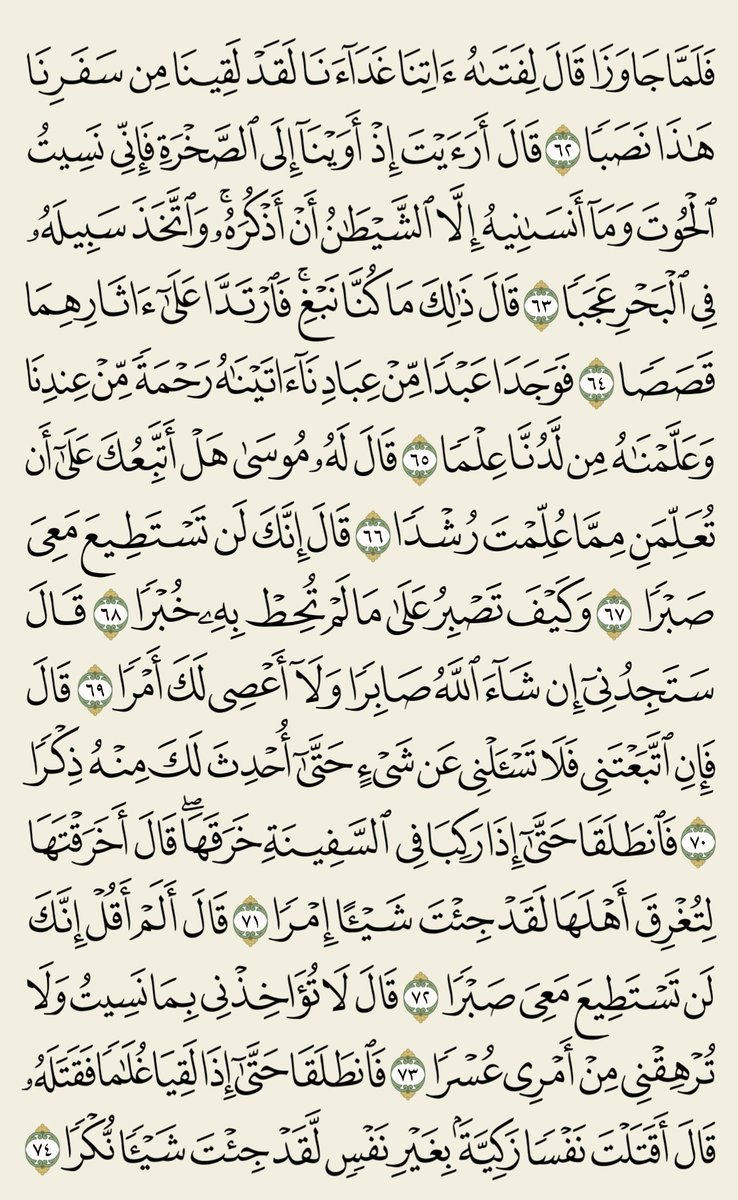 فَلَمَّا جَاوَزَا قَالَ لِفَتَىٰهُ ءَاتِنَا غَدَآءَنَا لَقَدۡ لَقِينَا مِن سَفَرِنَا
هَٰذَا نَصَبٗا ٦٢ قَالَ أَرَءَيۡتَ إِذۡ أَوَيۡنَآ إِلَى ٱلصَّخۡرَةِ فَإِنِّي نَسِيتُ
ٱلۡحُوتَ وَمَآ أَنسَىٰنِيهُ إِلَّا ٱلشَّيۡطَٰنُ أَنۡ أَذۡكُرَهُۥۚ وَٱتَّخَذَ سَبِيلَهُۥ
فِي ٱلۡبَحۡرِ عَجَبٗا ٦٣ قَالَ ذَٰلِكَ مَا كُنَّا نَبۡغِۚ فَٱرۡتَدَّا عَلَىٰٓ ءَاثَارِهِمَا
قَصَصٗا ٦٤ فَوَجَدَا عَبۡدٗا مِّنۡ عِبَادِنَآ ءَاتَيۡنَٰهُ رَحۡمَةٗ مِّنۡ عِندِنَا
وَعَلَّمۡنَٰهُ مِن لَّدُنَّا عِلۡمٗا ٦٥ قَالَ لَهُۥ مُوسَىٰ هَلۡ أَتَّبِعُكَ عَلَىٰٓ أَن
تُعَلِّمَنِ مِمَّا عُلِّمۡتَ رُشۡدٗا ٦٦ قَالَ إِنَّكَ لَن تَسۡتَطِيعَ مَعِيَ
صَبۡرٗا ٦٧ وَكَيۡفَ تَصۡبِرُ عَلَىٰ مَا لَمۡ تُحِطۡ بِهِۦ خُبۡرٗا ٦٨ قَالَ
سَتَجِدُنِيٓ إِن شَآءَ ٱللَّهُ صَابِرٗا وَلَآ أَعۡصِي لَكَ أَمۡرٗا ٦٩ قَالَ
فَإِنِ ٱتَّبَعۡتَنِي فَلَا تَسۡـَٔلۡنِي عَن شَيۡءٍ حَتَّىٰٓ أُحۡدِثَ لَكَ مِنۡهُ ذِكۡرٗا
٧٠ فَٱنطَلَقَا حَتَّىٰٓ إِذَا رَكِبَا فِي ٱلسَّفِينَةِ خَرَقَهَاۖ قَالَ أَخَرَقۡتَهَا
لِتُغۡرِقَ أَهۡلَهَا لَقَدۡ جِئۡتَ شَيۡـًٔا إِمۡرٗا ٧١ قَالَ أَلَمۡ أَقُلۡ إِنَّكَ
لَن تَسۡتَطِيعَ مَعِيَ صَبۡرٗا ٧٢ قَالَ لَا تُؤَاخِذۡنِي بِمَا نَسِيتُ وَلَا
تُرۡهِقۡنِي مِنۡ أَمۡرِي عُسۡرٗا ٧٣ فَٱنطَلَقَا حَتَّىٰٓ إِذَا لَقِيَا غُلَٰمٗا فَقَتَلَهُۥ
قَالَ أَقَتَلۡتَ نَفۡسٗا زَكِيَّةَۢ بِغَيۡرِ نَفۡسٖ لَّقَدۡ جِئۡتَ شَيۡـٔٗا نُّكۡرٗا ٧٤